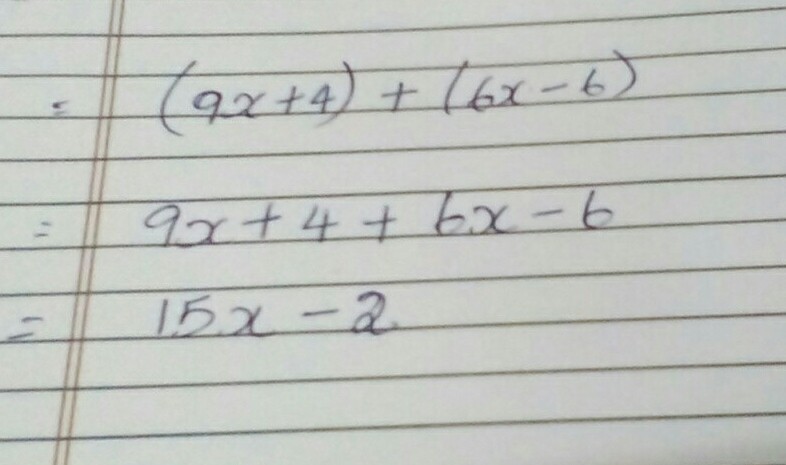 = (9x+4) + (6x-6)
= 9x+4+6x-6
= 15x-2